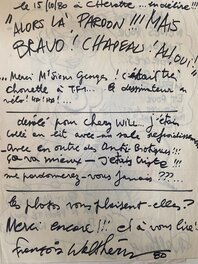 le 15/10/80 à Cheratte... en délire!!!
"ALORS LÀ PARDON!!! MAIS
BRAVO! CHAPEAU! AH OUI!"
"Merci M'sieur Georges! C'était très
chouette à TF1... le dessinateur
vélo!
désolé pour chez Will. J'étais
collé au lit avec un sale refroidissement
Avec en outre des Anti-Biotiques!!!
ça va mieux - J'étais triste!!!
me pardonnerez-vous jamais???...
les photos vous plaisent-elles?
Merci encore!!! et à vous lire!
François Walthéry
80